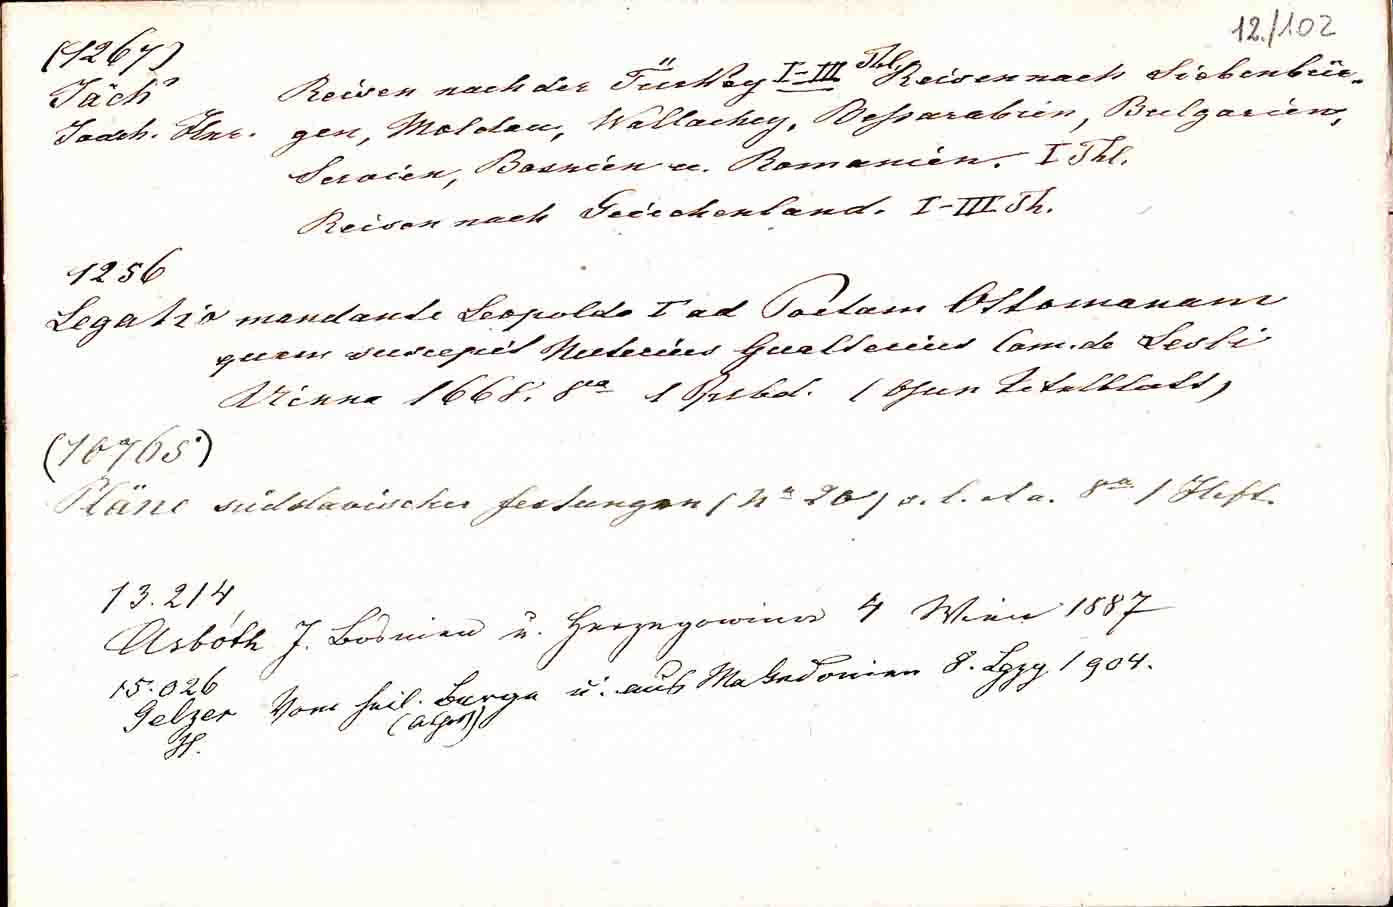 12./102
(1267)
Jäch Reisen nach der Türkey I-III Thl. Reisen nach Siebenbür-
Joach. Hnr. gen, Moldau, Wallachey, Bessarabien, Bulgarien,
Servien, Bosnien u. Romanien. I Thl.
Reisen nach Griechenland. I-III Th.
1256
Legatio mandante Leopoldo I ad Portam Ottomanam
quam suscepit Gualterius Com. de Lesli
Vienna 1668. 8va 1 (Ohne Titelblatt)
(10765)
Pläne südslavischer Festungen (No 20) s. l. et a. 8vo 1 Heft.
13.214
Asbóth J. Bosnien u. Herzegowina 4 Wien 1887
15.026
Gelzer Vom heil. Berge u. aus Makedonien 8. Lpzg 1904.
H. (Athos)